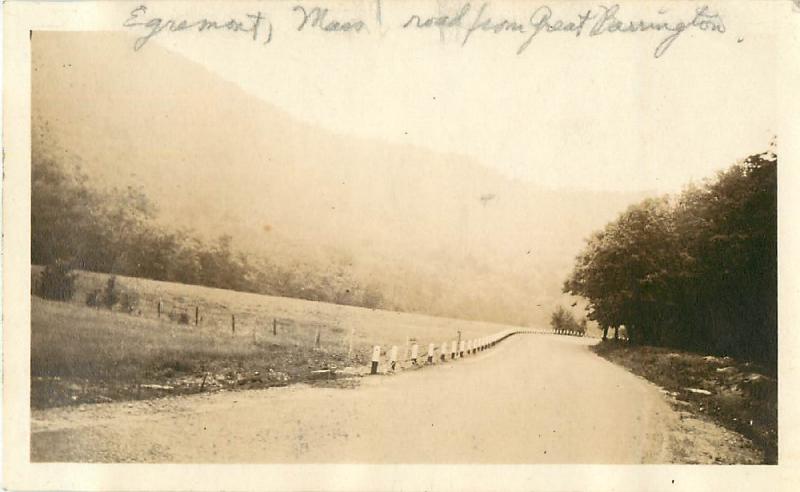 Egremont, Mass road from Great Barrington